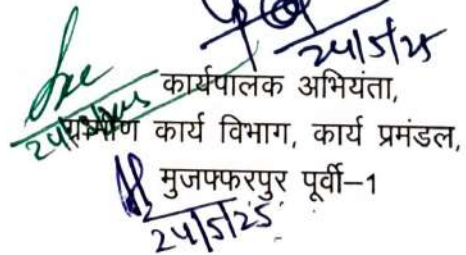 24/5/25
कार्यपालक अभियंता,
24/5/25
ग्रामीण कार्य विभाग, कार्य प्रमंडल,
मुजफ्फरपुर पूर्वी–1
24/5/25